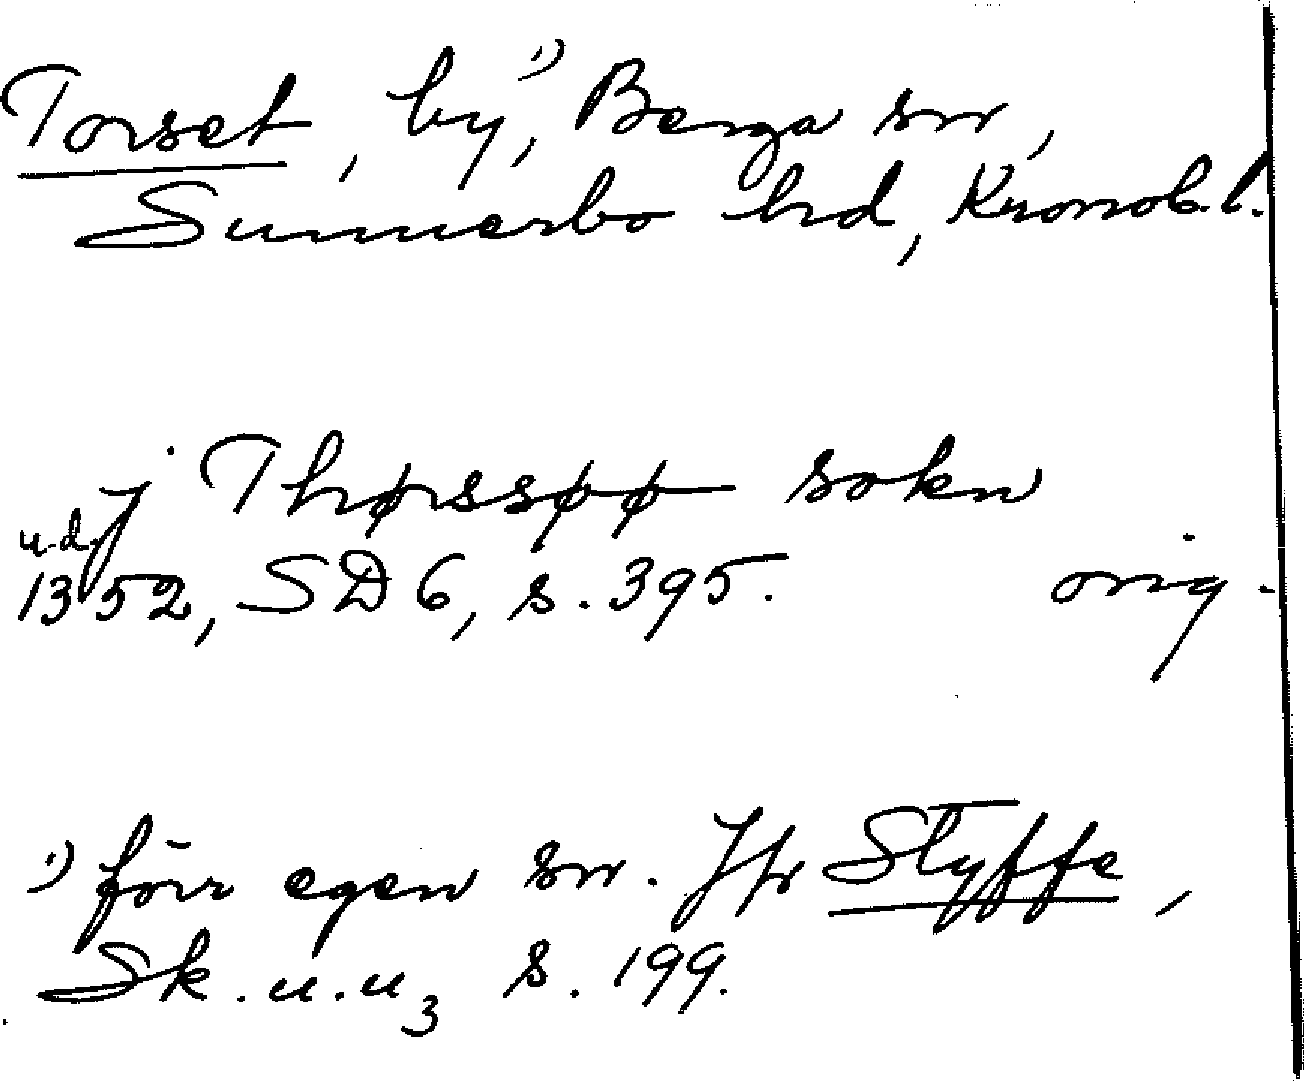 Torset, by,¹⁾ Berga sn,
Sunnerbo hd, Kronob. l.
j Thørssøø sokn
u.d. 1352, SD 6, s. 395. orig.
¹⁾ förr egen sn. Jfr Styffe,
Sk. u. u₃ s. 199.